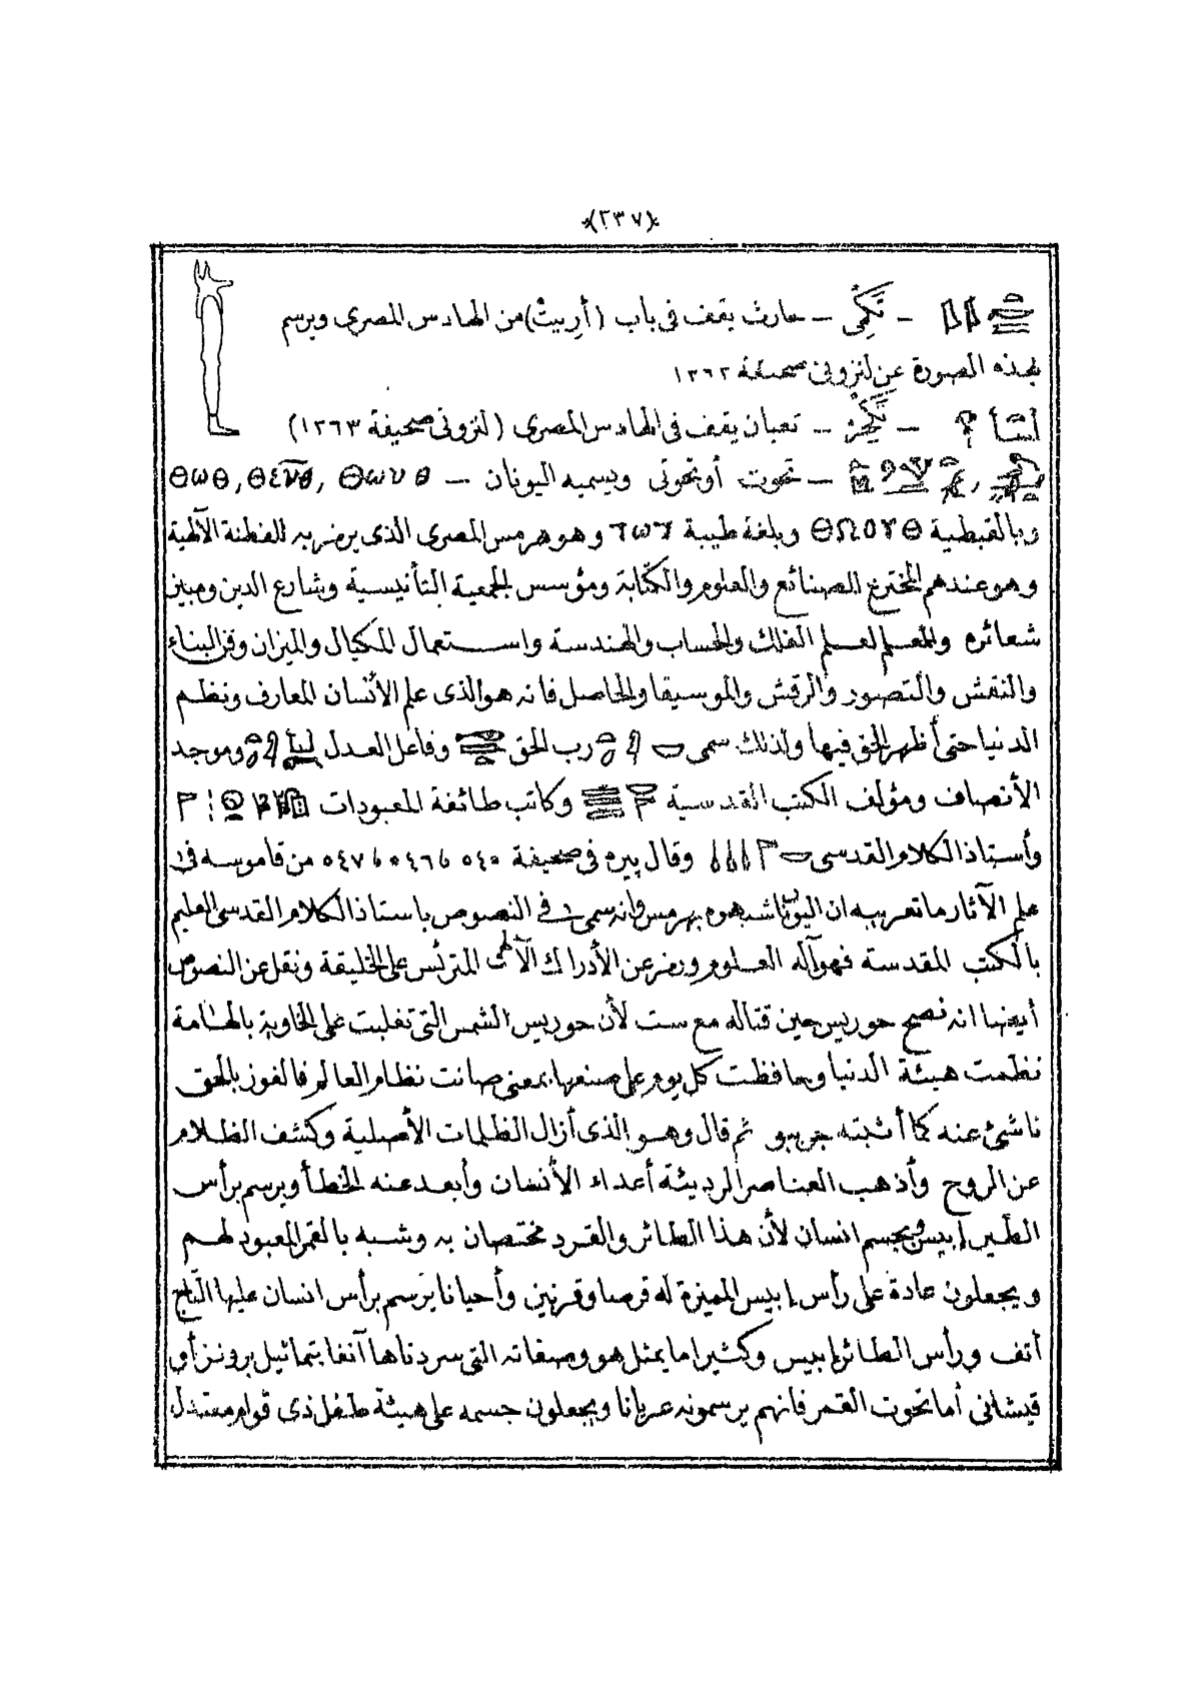 (٢٣٧)
– تَكَمِى – حارث يقف فى باب (أربيت) من الهادس المصرى ويرسم
بهذه الصورة عن لنزونى صحيفة ١٣٦٢
– – ثعبان يقف فى الهادس المصرى (لنزونى صحيفة ١٣٦٣)
– تحوت أو تحوتى ويسميه اليونان – Θωυθ ,Θευθ ,Θωθ
وبالقبطية ΘΩΟΥΘ وبلغة طيبة وهو هرمس المصرى الذى يرمز به للفطنة الآلهية
وهو عندهم المخترع للصنائع والعلوم والكتابة ومؤسس الجمعية التأنيسية وشارع الدين ومبين
شعائره والمعلم لعلم الفلك والحساب والهندسة واستعمال المكيال والميزان وفن البناء
والنقش والتصور والرقش والموسيقا والحاصل فانه هو الذى علم الأنسان المعارف ونظم
الدنيا حتى أظهر الحق فيها ولذلك سمى رب الحق وفاعل العدل وموجد
الأنصاف ومؤلف الكتب القدسية وكاتب طائفة المعبودات
وأستاذ الكلام القدسى وقال پيره فى صحيفة ٥٤٥ و ٥٤٦ و ٥٤٧ من قاموسه فى
علم الآثار ما تعريبه ان اليونان شبهوه بهرمس وانه سمى فى النصوص باستاذ الكلام القدسى العليم
بالكتب المقدسة فهو آله العلوم ورمز عن الأدراك الآلهى المترئس على الخليقة ونقل عن النصوص
أيضا انه نصح حوريس حين قتاله مع ست لأن حوريس الشمس التى تغلبت على الخاوية بالهامة
نظمت هيئة الدنيا وحافظت كل يوم على صنعها بمعنى صانت نظام العالم فالفوز بالحق
ناشئ عنه كما أثبته جريبو ثم قال وهو الذى أزال الظلمات الأصلية وكشف الظلام
عن الروح وأذهب العناصر الرديئة أعداء الأنسان وأبعد عنه الخطأ ويرسم برأس
الطير إبيس وبجسم انسان لأن هذا الطائر والقرد مختصان به وشبه بالقمر المعبود لهم
ويجعلون عادة على رأس إبيس المميزة له قرصا وقرنين وأحيانا يرسم برأس انسان عليها التاج
أتف ورأس الطائر إبيس وكثيرا ما يمثل هو وصفاته التى سردناها آنفا بتماثيل برونز أو
قيشانى أما تحوت القمر فانهم يرسمونه عريانا ويجعلون جسمه على هيئة طفل ذى قوام معتدل